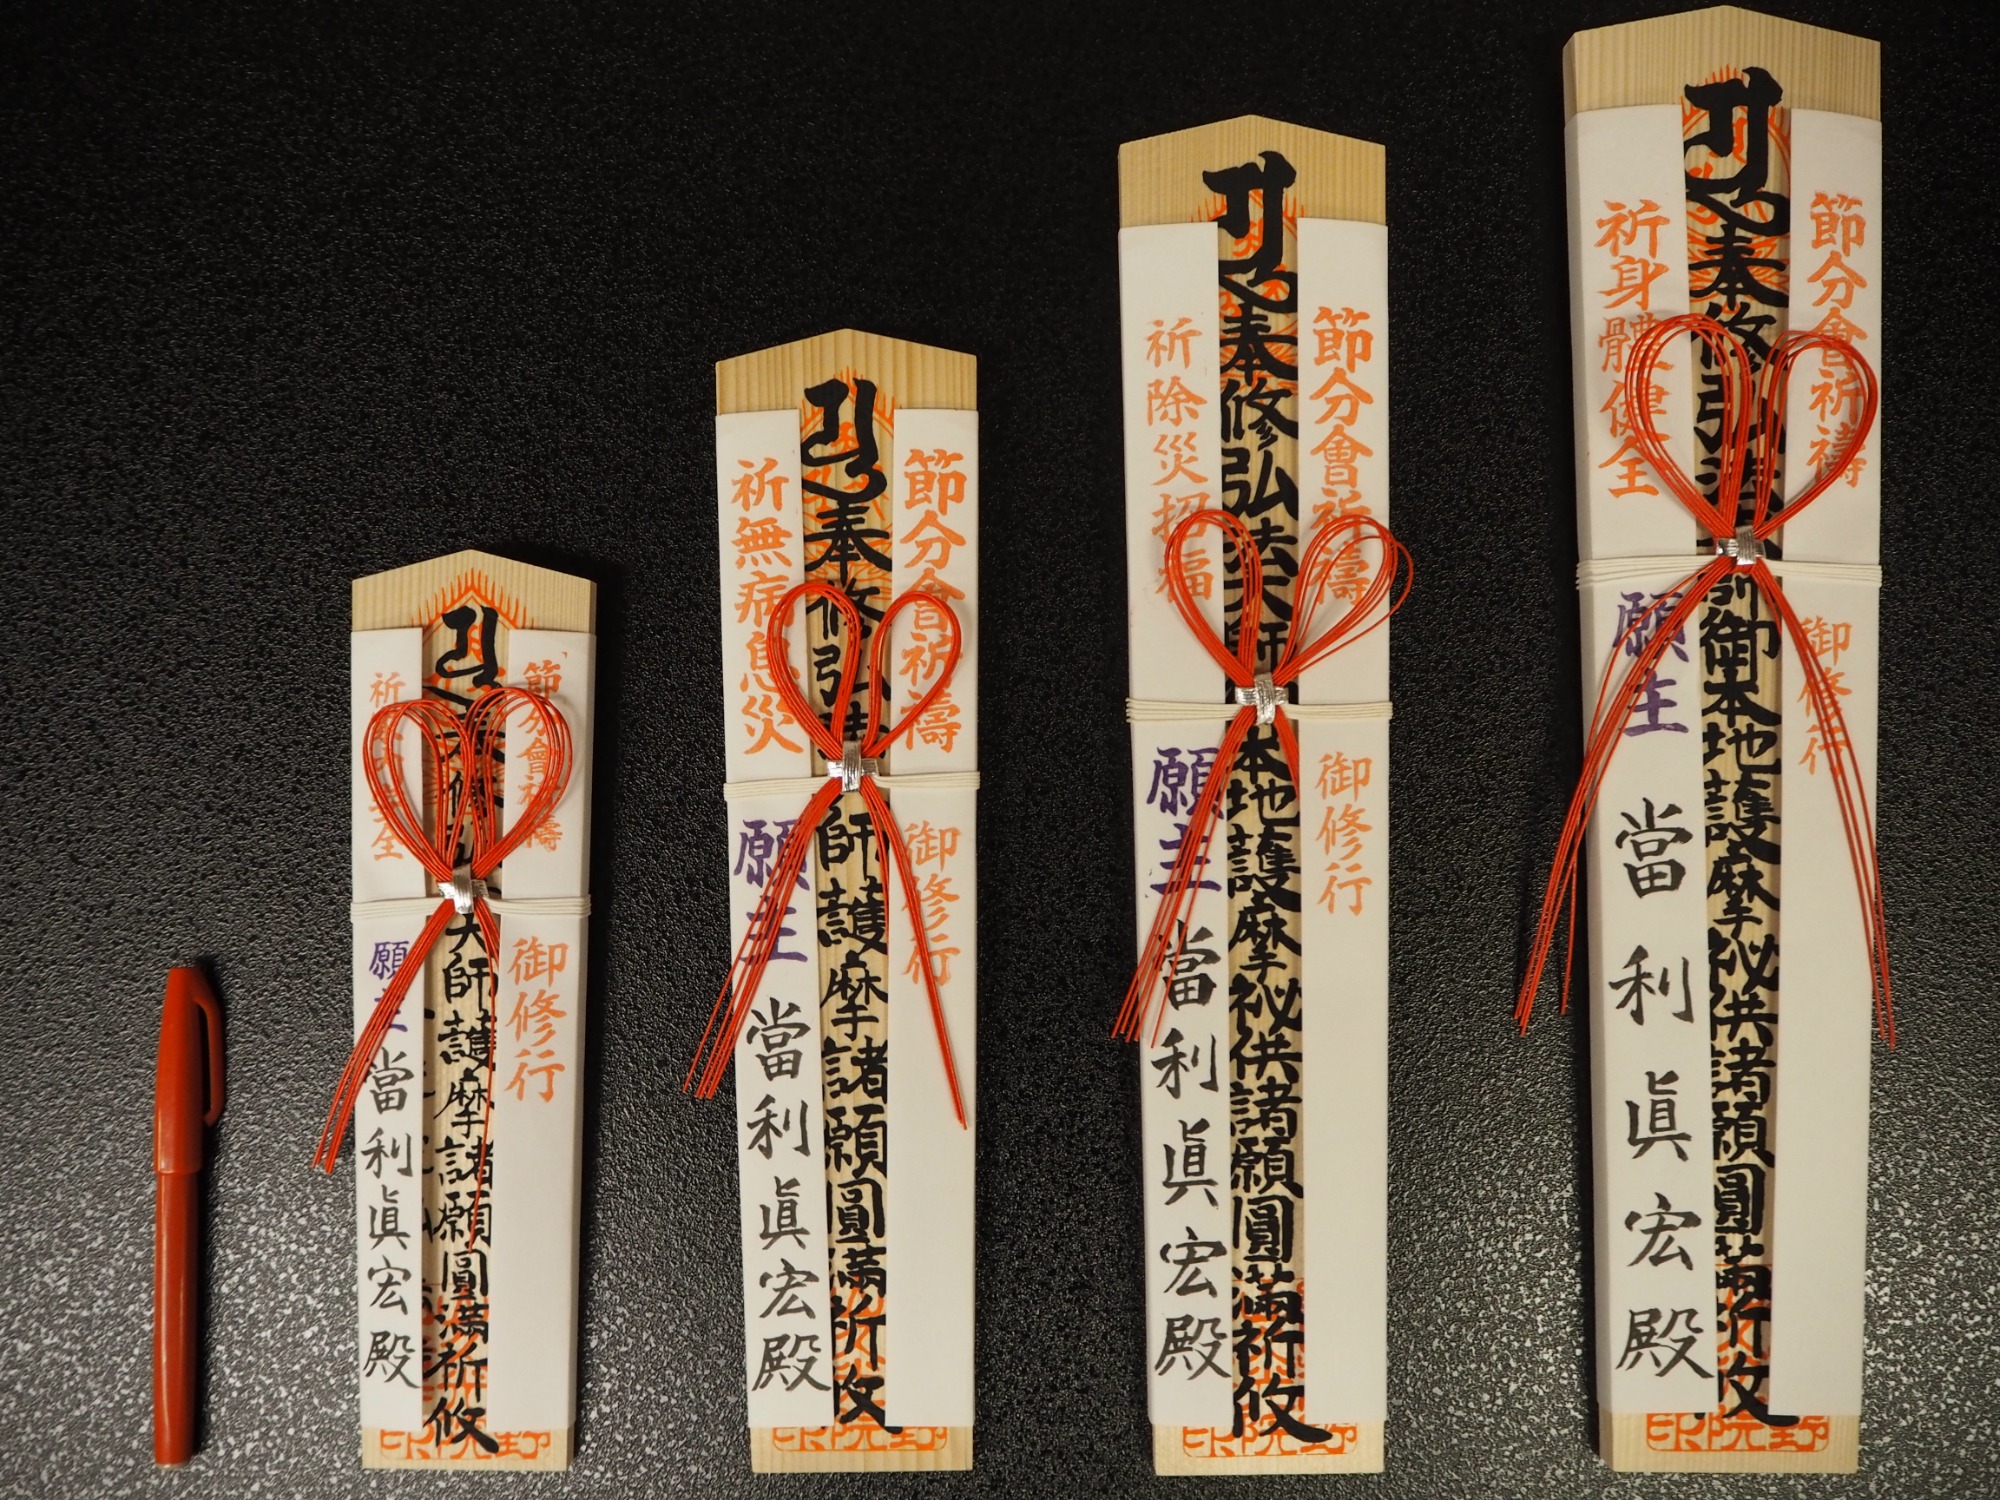 節分會祈禱
御修行
師護摩諸願圓満祈攸
祈
全
願主
當利眞宏殿
節分會祈禱
御修行
奉修弘
師護摩諸願圓満祈攸
祈無病息災
願主
當利眞宏殿
節分會祈禱
御修行
奉修弘法大師
本地護摩祕供諸願圓満祈攸
祈除災招福
願主
當利眞宏殿
節分會祈禱
御修行
奉修弘法
御本地護摩祕供諸願圓満祈攸
祈身體健全
願主
當利眞宏殿